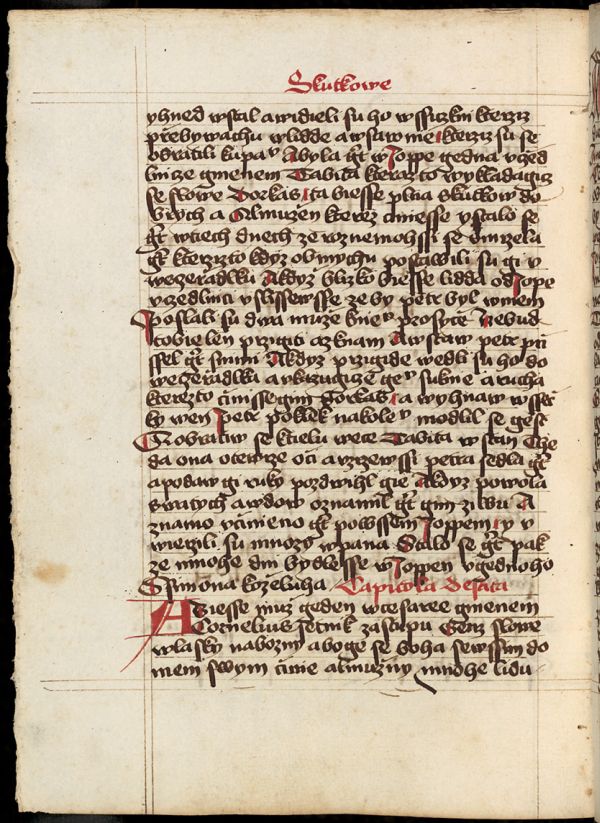 Skutkowe
yhned wstal a widieli su ho wssiczkni kterziz
przebywachu w lidde a w sawnie kterziz su se
obratili ku panu A byla gest w Joppe gedna vczed
lnicze gmenem Tabita kterazto wykladagicz
se slowe Dorkas ta biesse plna skutkow do
brych a Almuzen kterez cziniesse y stalo se
gest w tiech dnech ze roznemohssi se vmrzela
gest kterzizto kdyz obmychu postawili su gi v
weczerzadlku A kdyz blizko biesse lidda od Jope
vczedlnici vslissewsse ze by petr byl w niem
poslali su dwa muze k niemu prosycze Nebud
tobie len przigiti az k nam A wstaw petr przi
ssel gest s nimi A kdyz przigide wedli su ho do
weczerzadlka a vkazugicze gemu sukne a rucha
kterezto cziniesse gim Dorkas a wyhnaw wssec
ky wen Petr poklek na kolenu modlil se gest
A obratiw se k tielu wece Tabita wstan Tehe
da ona otewrze oczi a vzrzewssi petra sedla gest
a podaw gi ruky pozdwihl gie A kdyz powola
swatych a wdow oznamil gest gim ziwu A
znamo vczinieno gest po wssem Joppem y v
wierzili su mnozy w pana Stalo se gest pak
ze mnohe dni bydlesse w Joppen v gednoho
Ssimona kozeluha Capitola desata
A Biesse muz geden w cesaree gmenem
Cornelius setnik zastupu Genz slowe
wlasky nabozny a boge se boha se wssim do
mem swym czinie almuzny mnohe lidu